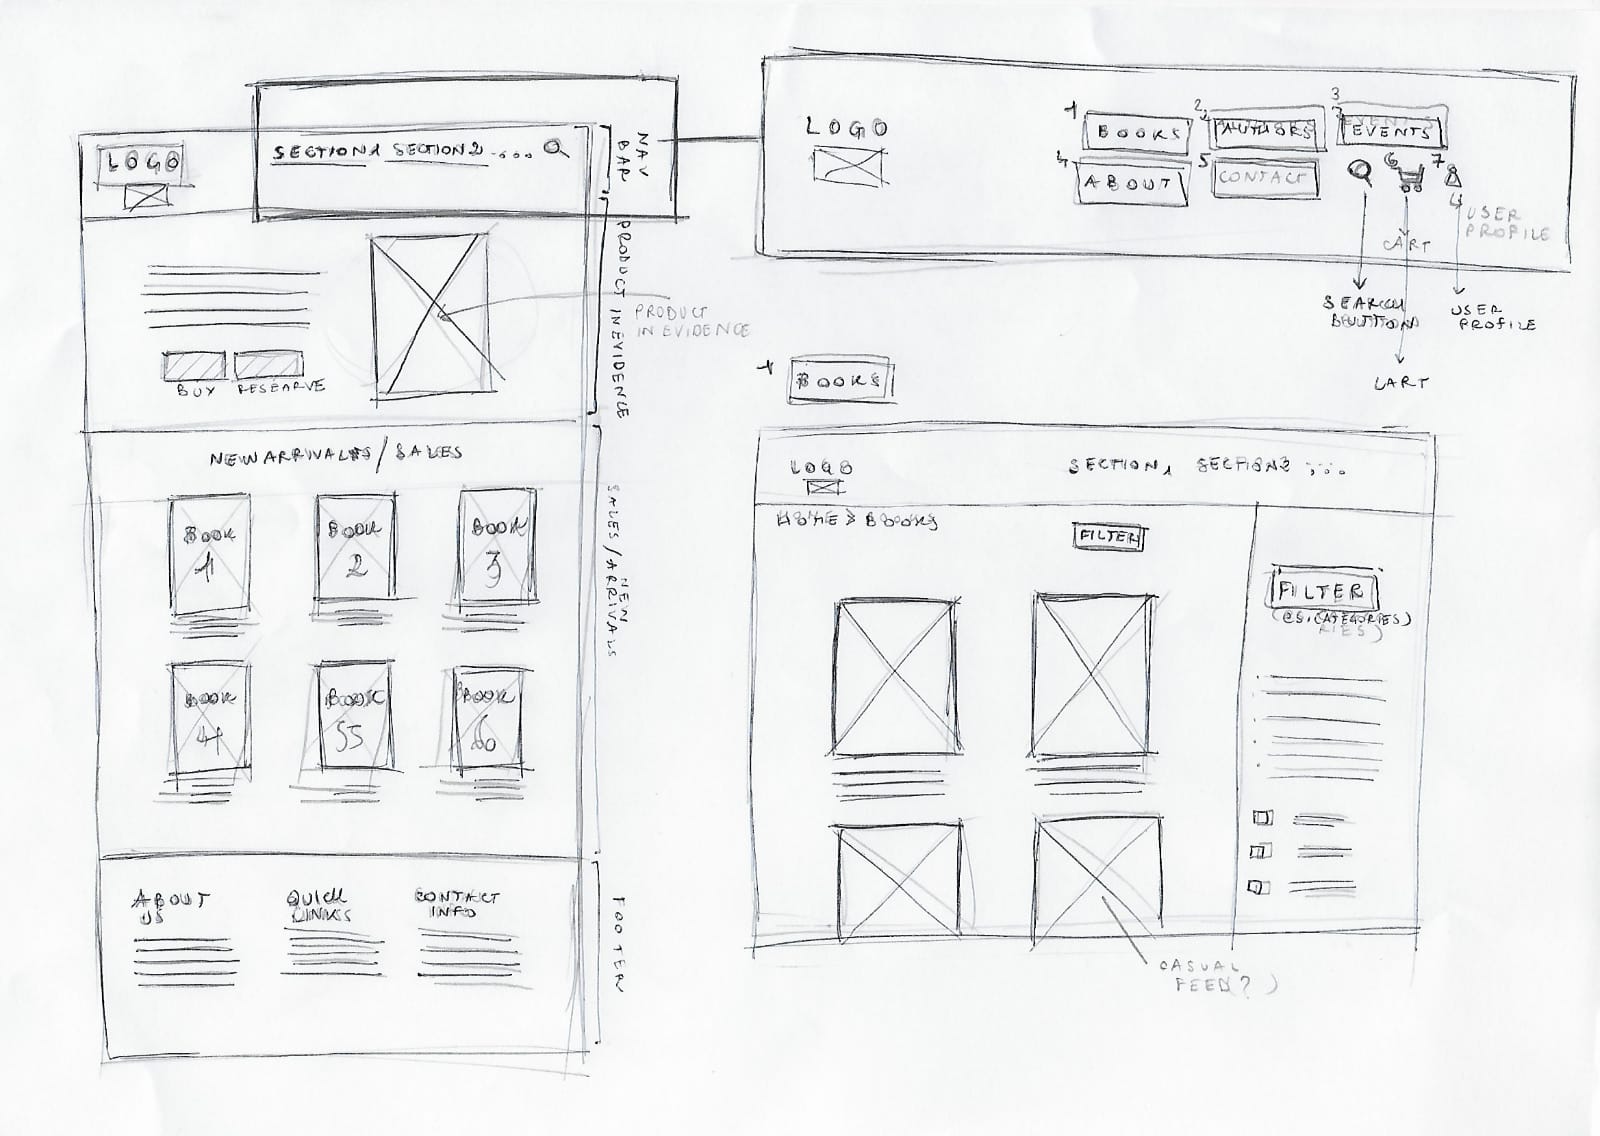 LOGO
SECTION1 SECTION2 ....
NAV
BAR
PRODUCT IN EVIDENCE
PRODUCT
IN EVIDENCE
BUY RESEARVE
NEW ARRIVALS / SALES
BOOK
1
BOOK
2
BOOK
3
BOOK
4
BOOK
5
BOOK
6
SALES / NEW
ARRIVALS
ABOUT
US
QUICK
LINKS
CONTACT
INFO
FOOTER
LOGO
1 BOOKS
2 AUTHORS
3 EVENTS
4 ABOUT
5 CONTACT
6
7
USER
PROFILE
CART
SEARCH
USER
PROFILE
CART
1 BOOKS
LOGO
SECTION1 SECTION2 ...
HOME > BOOKS
FILTER
FILTER
(ES. CATEGORIES)
RIES)
CASUAL
FEED?)